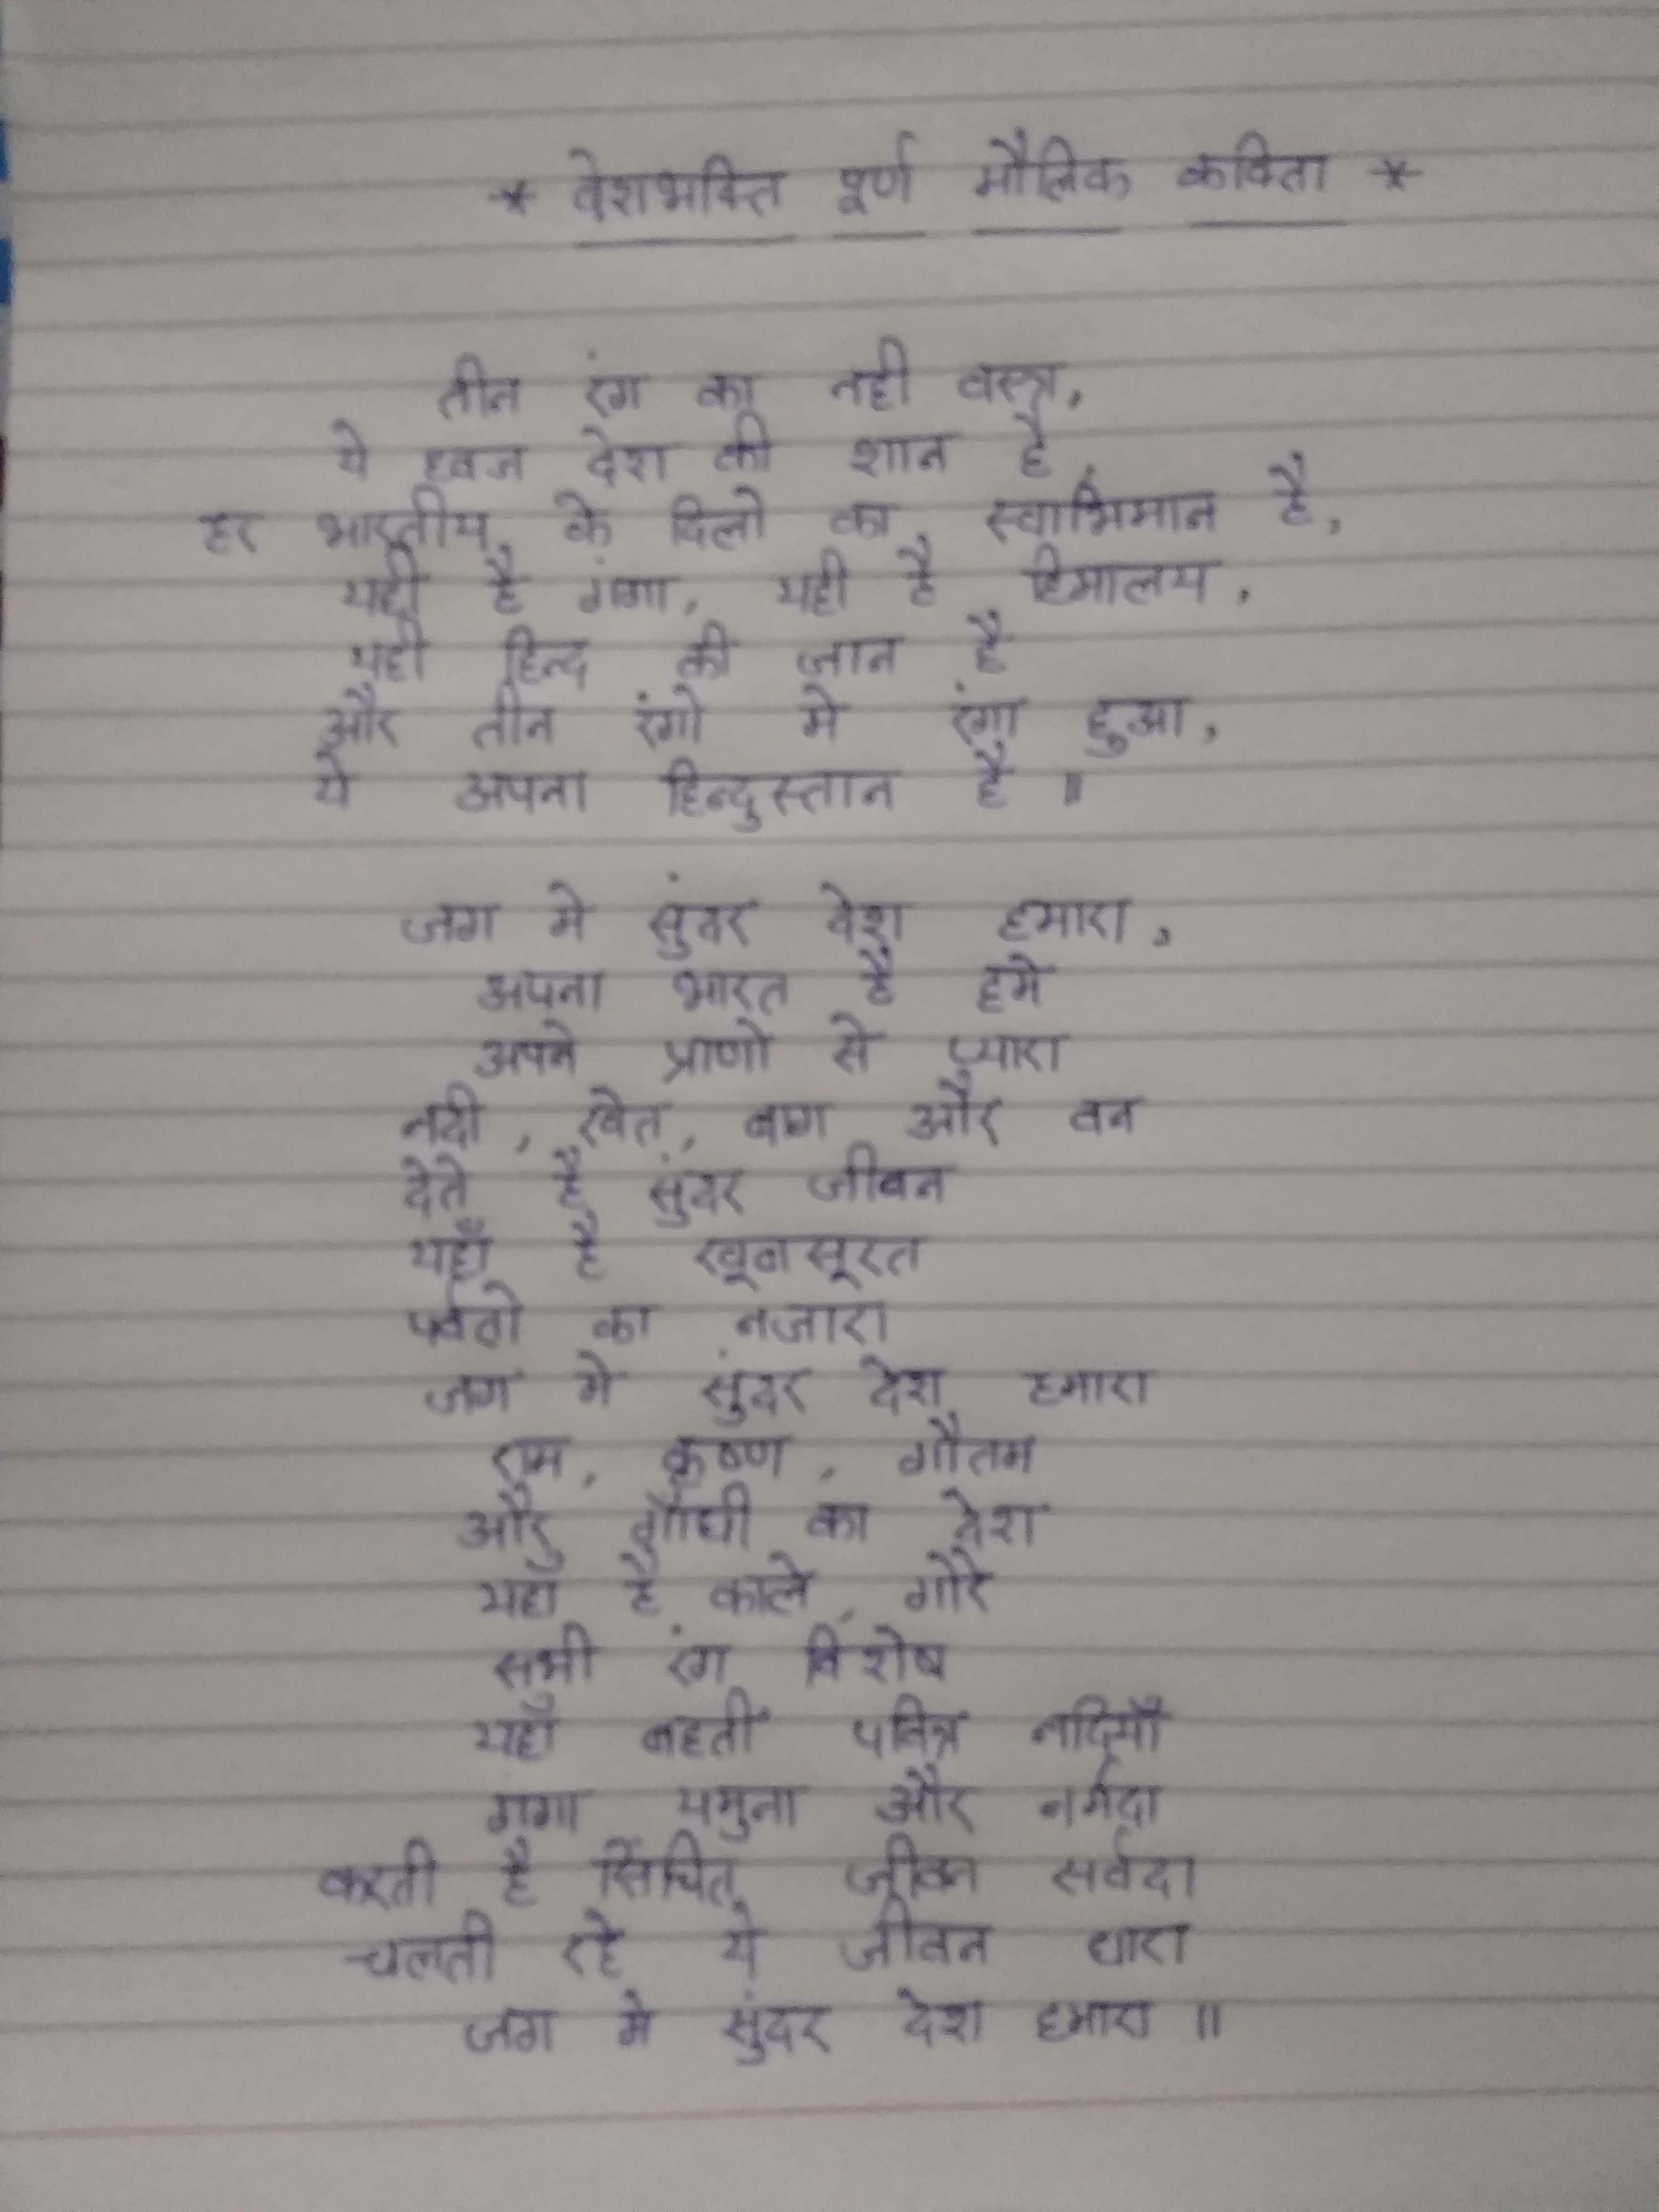 * देशभक्ति पूर्ण मौलिक कविता *
तीन रंग का नही वस्त्र,
ये ध्वज देश की शान है,
हर भारतीय के दिलो का स्वाभिमान है,
यही है गंगा, यही है हिमालय,
यही हिन्द की जान है
और तीन रंगो मे रंगा हुआ,
ये अपना हिन्दुस्तान है ॥
जग मे सुंदर देश हमारा,
अपना भारत है हमे
अपने प्राणो से प्यारा
नदी, खेत, बाग और वन
देते है सुंदर जीवन
यहाँ है खूबसूरत
पर्वतो का नजारा
जग मे सुंदर देश हमारा
राम, कृष्ण, गौतम
और गाँधी का देश
यहाँ है काले, गोरे
सभी रंग विशेष
यहाँ बहती पवित्र नदियाँ
गंगा यमुना और नर्मदा
करती है सिंचित जीवन सर्वदा
चलती रहे ये जीवन धारा
जग मे सुंदर देश हमारा ॥